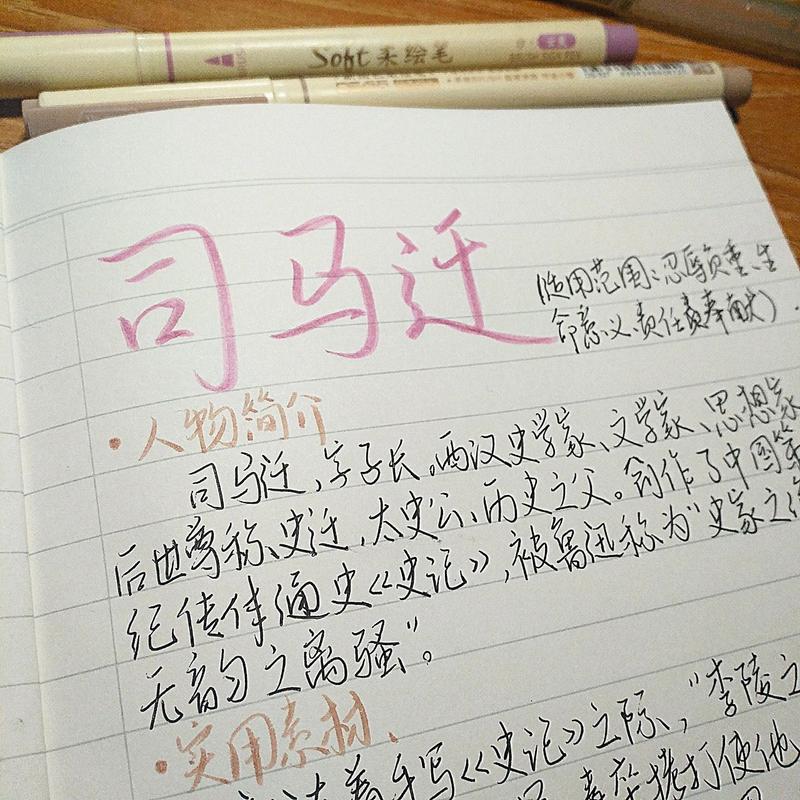 Soft 柔绘笔
司马迁
(适用范围:忍辱负重、生
命意义、责任、奉献)
·人物简介
司马迁,字子长。西汉史学家、文学家、思想家
后世尊称史迁、太史公、历史之父。创作了中国第
纪传体通史《史记》,被鲁迅称为"史家之绝
无韵之离骚"。
·实用素材、
着手写《史记》之际,"李陵之
使他